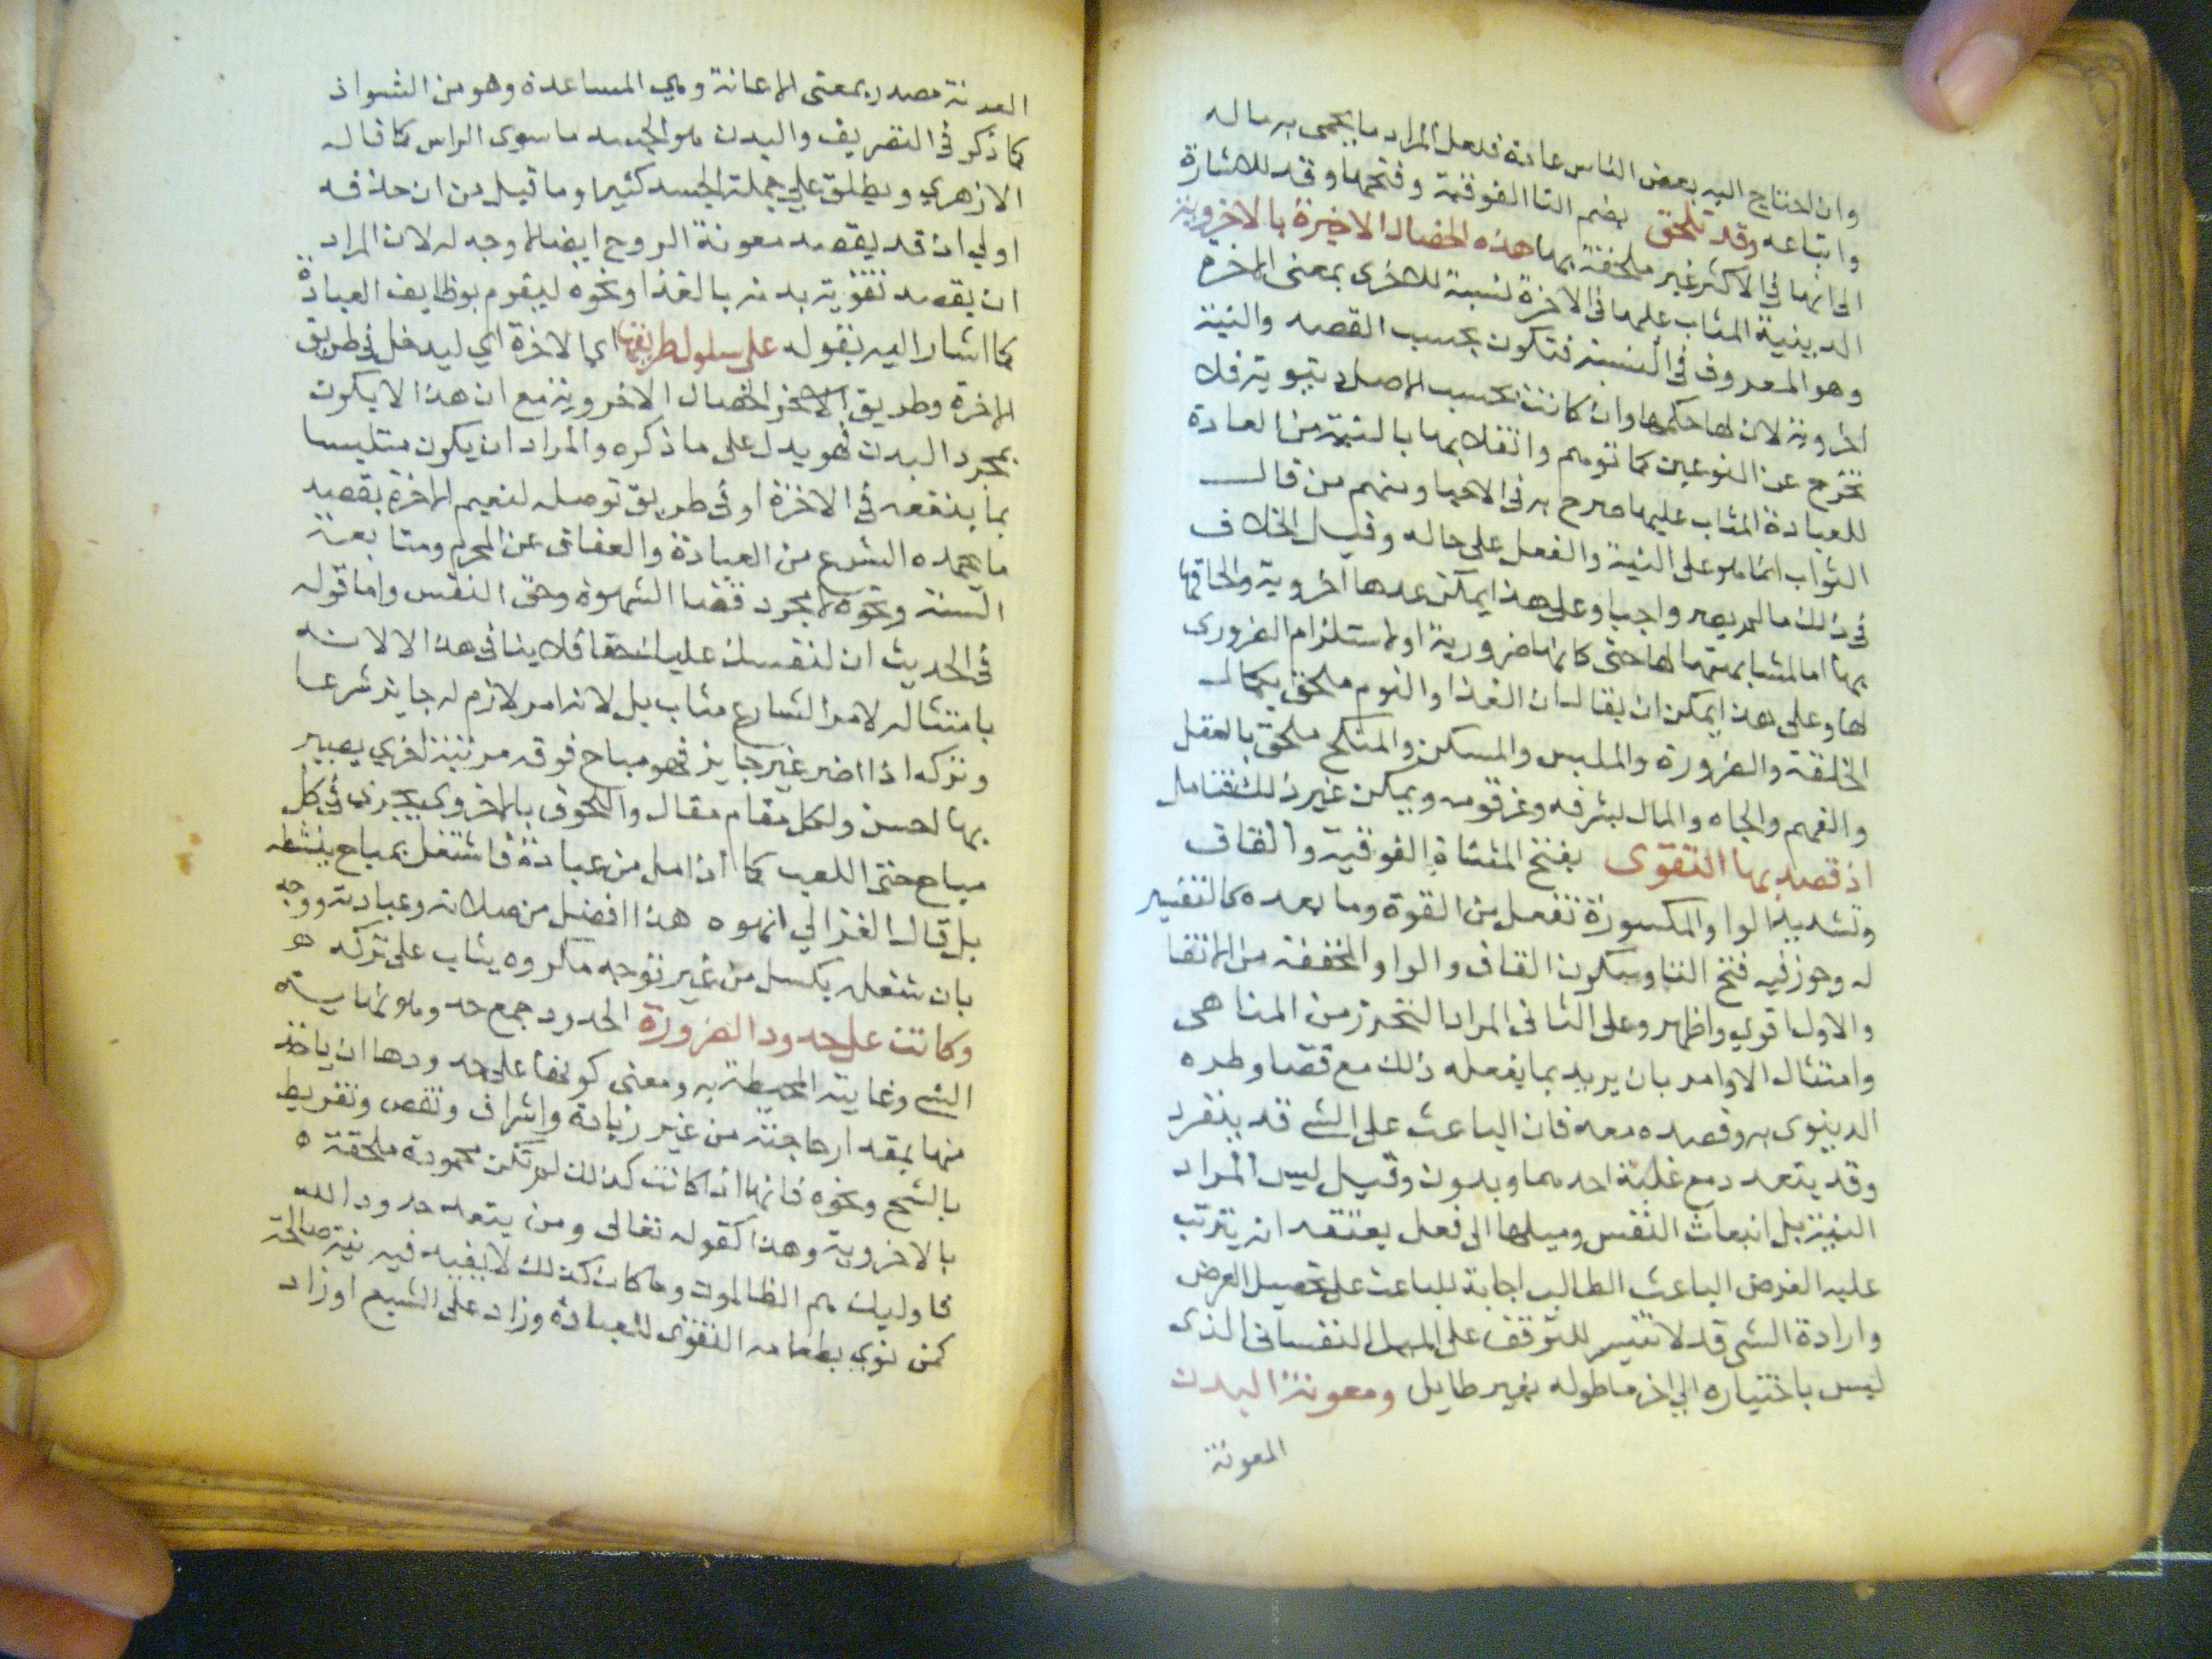 وان احتاج اليه بعض الناس عادة فلعل المراد ما يحمى به ماله
واتباعه وقد تلحق بضم التا الفوقية وفتحها وقد للاشارة
الى انها في الاكثر غير ملحقة بها هذه الخصال الاخيرة بالاخروية
الدينية المثاب عليها في الاخرة نسبة للاخرى بمعنى الاخرة
وهو المعروف في النسبة فتكون بحسب القصد والنية
اخروية لان لها حكمها وان كانت بحسب الاصل دنيوية فلا
تخرج عن النوعين كما توهم وانقلابها بالنية من العادة
للعبادة المثاب عليها صرح به في الاحيا ومنهم من قال
الثواب انما هو على النية والفعل على حاله وقيل الخلاف
في ذلك ما لم يصر واجبا وعلى هذا يمكن عدها اخروية والحاقها
بها اما لمشابهتها لها حتى كانها ضرورية او لاستلزام الضرورى
لها وعلى هذا يمكن ان يقال ان الغذا والنوم ملحق بكمال
الخلقة والضرورة والملبس والمسكن والمنكح ملحق بالعقل
والفهم والجاه والمال لشرفه وعز قومه ويمكن غير ذلك فتامل
اذ قصد بها التقوى بفتح المثناة الفوقية والقاف
وتشديد الواو المكسورة تفعل من القوة وما بعده كالتفسير
له وجوز فيه فتح التا وسكون القاف والواو المخففة من الاتقا
والاول اقوي واظهر وعلى الثانى المراد التحرز من المناهى
وامتثال الاوامر بان يريد بما يفعله ذلك مع قضا وطره
الدنيوى به وقصده معه فان الباعث على الشي قد ينفرد
وقد يتعدد مع غلبة احدهما وبدون وقيل ليس المراد
النية بل انبعاث النفس وميلها الى فعل يعتقد انه يترتب
عليه الغرض الباعث الطالب اجابة للباعث على تحصيل الغرض
وارادة الشي قد لا تتيسر للتوقف على الميل النفسانى الذى
ليس باختياره الي اخر ما طوله بغير طايل ومعونة البدن
المعونة
العونة مصدر بمعنى الاعانة وهي المساعدة وهو من الشواذ
كما ذكر في التصريف والبدن هو الجسد ما سوى الراس كما قاله
الازهري ويطلق علي جملة الجسد كثيرا وما قيل من ان حذفه
اولي اذ قد يقصد معونة الروح ايضا لا وجه له لان المراد
ان يقصد تقوية بدنه بالغذا ونحوه ليقوم بوظايف العبادة
كما اشار اليه بقوله على سلوك طريقها اي الاخرة اي ليدخل في طريق
الاخرة وطريق الاخر الخصال الاخروية مع ان هذا لا يكون
بمجرد البدن فهو يدل على ما ذكره والمراد ان يكون متلبسا
بما ينفعه في الاخرة او في طريق توصله لنعيم الاخرة بقصد
ما يحمده الشرع من العبادة والعفاف عن المحرم ومتابعة
السنة ونحوه لا مجرد قضا الشهوة وحق النفس واما قوله
في الحديث ان لنفسك عليك حقا فلا ينافى هذا لا لانه
بامتثاله لامر الشارع مثاب بل لانه امر لازم له جايز شرعا
وتركه اذا اضر غير جايز فهو مباح فوقه مرتبة اخري يصير
بها احسن ولكل مقام مقال واللحوق بالاخروى يجرى في كل
مباح حتى اللعب كما اذا مل من عبادة فاشتغل بمباح ينشطه
بل قال الغزالي انه هذا افضل من صلاته وعبادته ووجه
بان شغله بكسل من غير توجه مكروه يثاب على تركه
وكانت على حدود الضرورة الحدود جمع حد وهو نهاية
الشي وغايته المحيطة به ومعنى كونها على حدودها ان ياخذ
منها بمقدار حاجته من غير زيادة واشراف ونقص وتفريط
بالشح ونحوه فانها اذا كانت كذلك لم تكن محمودة ملحقة
بالاخروية وهذا كقوله تعالى ومن يتعد حدود الله
فاوليك هم الظالمون وما كان كذلك لا يفيد فيه نية صالحة
كمن نوي بطعامه التقوى للعبادة وزاد على الشبع او زاد